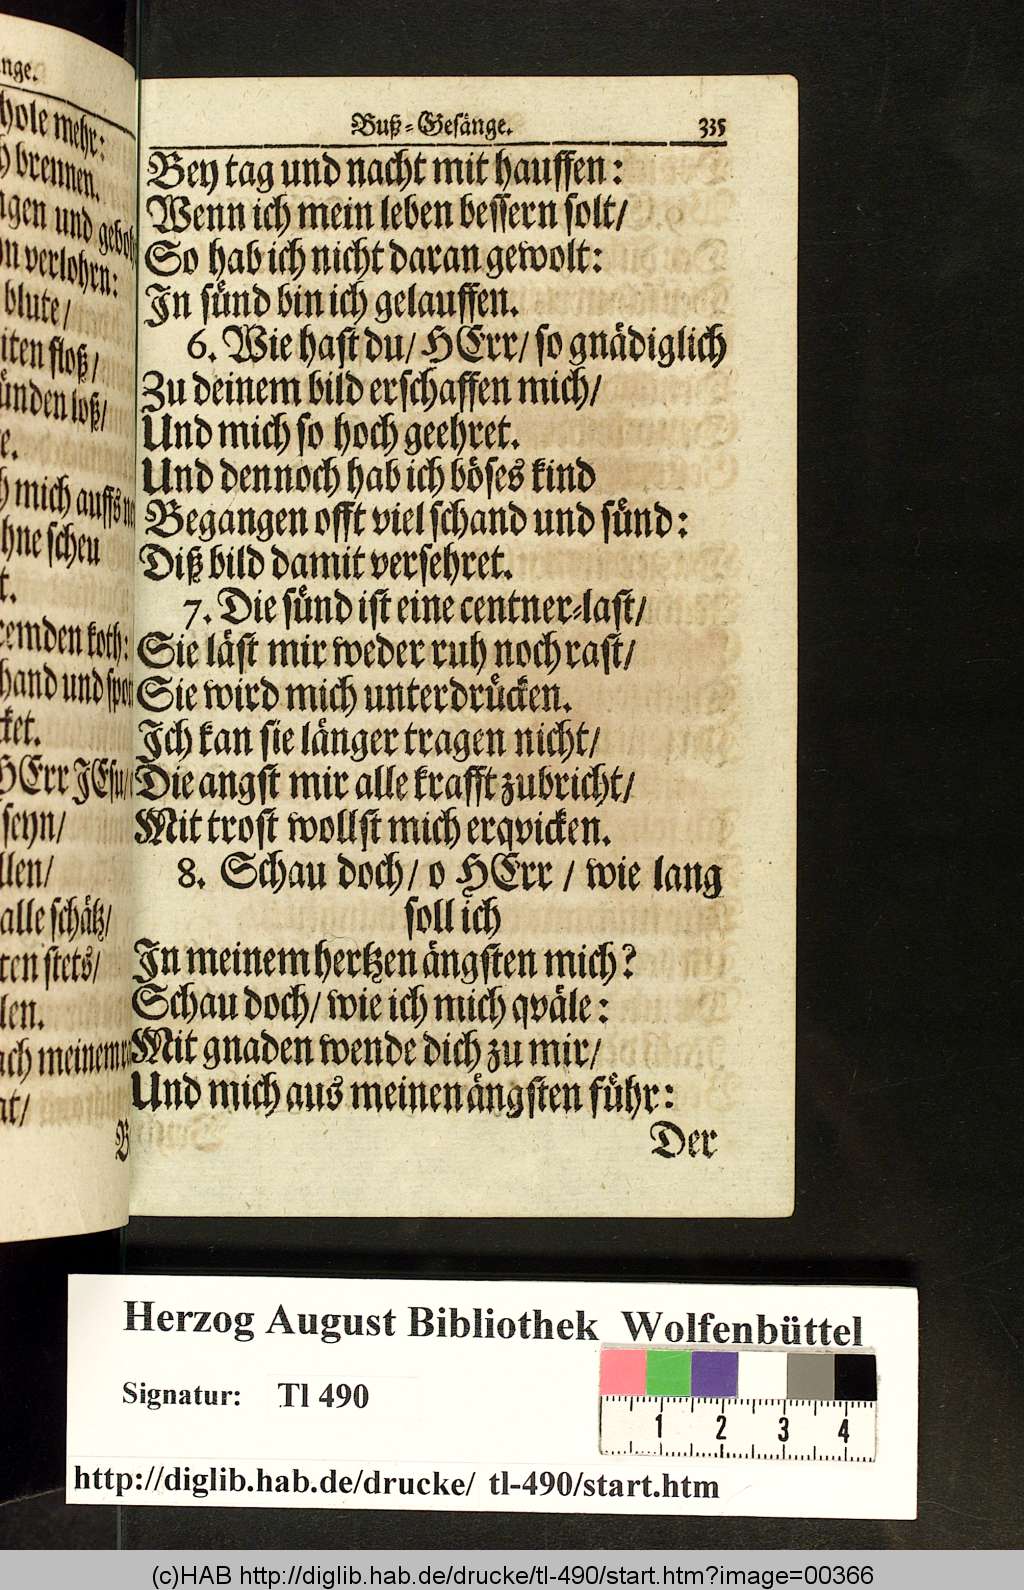 nge.
hole mehr:
brennen.
gen und
verlohrn:
blute/
iten floß/
ünden loß/
e.
mich auffs
hne scheu
t.
remden koth:
hand und
cket.
HErr JEsu/
seyn/
llen/
alle schätz/
ten stets/
len.
ach meinem
at/
B
Buß-Gesänge. 335
Bey tag und nacht mit hauffen:
Wenn ich mein leben bessern solt/
So hab ich nicht daran gewolt:
In sünd bin ich gelauffen.
6. Wie hast du/ HErr/ so gnädiglich
Zu deinem bild erschaffen mich/
Und mich so hoch geehret.
Und dennoch hab ich böses kind
Begangen offt viel schand und sünd:
Diß bild damit versehret.
7. Die sünd ist eine centner-last/
Sie läst mir weder ruh noch rast/
Sie wird mich unterdrücken.
Ich kan sie länger tragen nicht/
Die angst mir alle krafft zubricht/
Mit trost wollst mich erqvicken.
8. Schau doch/ o HErr / wie lang
soll ich
In meinem hertzen ängsten mich?
Schau doch/ wie ich mich qväle:
Mit gnaden wende dich zu mir/
Und mich aus meinen ängsten führ:
Der
Herzog August Bibliothek Wolfenbüttel
Signatur: Tl 490
1 2 3 4
http://diglib.hab.de/drucke/ tl-490/start.htm
(c)HAB http://diglib.hab.de/drucke/tl-490/start.htm?image=00366